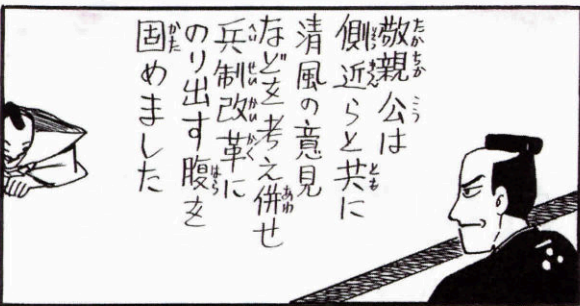 敬親公は
側近らと共に
清風の意見
などを考え併せ
兵制改革に
のり出す腹を
固めました